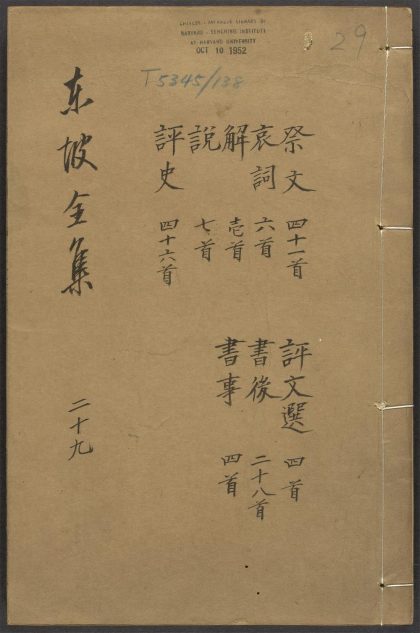 CHINESE-JAPANESE LIBRARY OF
HARVARD-YENCHING INSTITUTE
AT HARVARD UNIVERSITY
OCT 10 1952
29
T5345/138
祭文 四十一首
哀詞 六首
解 壱首
說 七首
評史 四十六首
評文選 四首
書後 二十八首
書事 四首
东坡全集
二十九